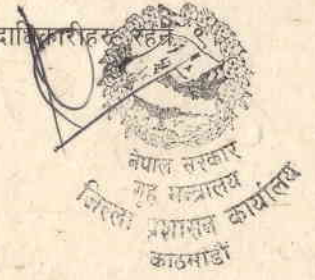 रहने
नेपाल सरकार
गृह मन्त्रालय
जिल्ला प्रशासन कार्यालय
काठमाडौं